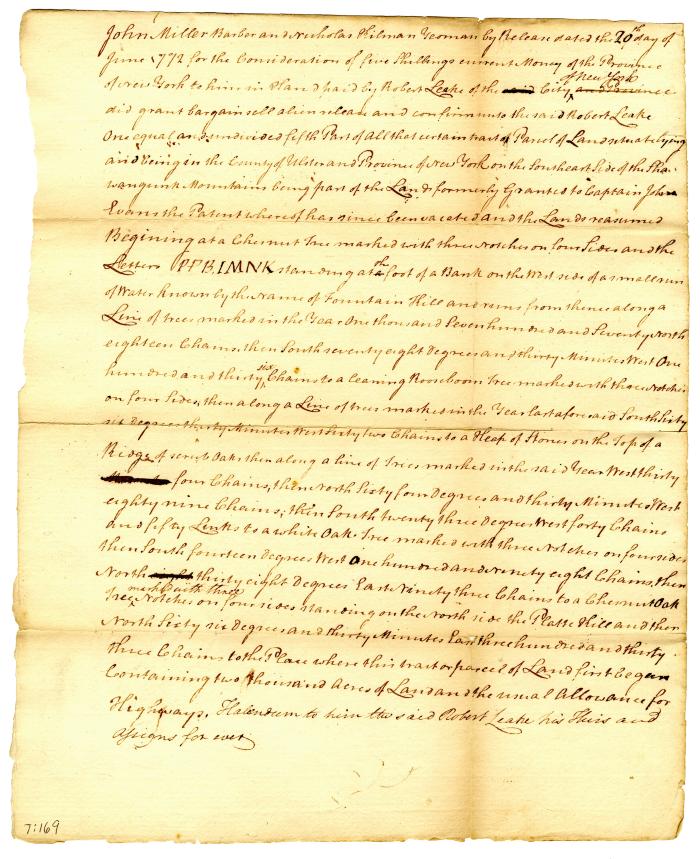 John Miller Barber and Nicholas Hilman Yeoman by Release dated the 20th day of
June 1772 for the Consideration of five Shillings current Money of the Province
of New York to him in Hand paid by Robert Leake of the said City of New York and Province
did grant bargain sell alien release and confirm unto the said Robert Leake
One equal and undivided fifth Part of All that certain tract or Parcel of Land situate lying
and being in the County of Ulster and Province of New York on the Southeast Side of the Sha
wangunk Mountains being part of the Lands formerly Granted to Captain John
Evans the Patent whereof has since been vacated and the Lands reasumed
Begining at a Chesnut Tree marked with three Notches on four Sides and the
Letters PPB,IMNK standing at the foot of a Bank on the West side of a small run
of Water known by the Name of Fountain Hill and runs from thence along a
Line of trees marked in the Year One thousand Seven hundred and Seventy North
eighteen Chains, then South seventy eight Degrees and thirty Minutes West One
hundred and thirty six Chains to a leaning Rooseboom Tree marked with three Notches
on four Sides, then along a Line of trees marked in the Year last aforesaid South Sixty
six degrees thirty Minutes West Sixty two Chains to a Heap of Stones on the Top of a
Ridge of scrub Oaks then along a line of Trees marked in the said Year West thirty
four Chains, then North Sixty four Degrees and thirty Minutes West
eighty nine Chains, then South twenty three degrees West forty Chains
and fifty Links to a white Oak Tree marked with three Notches on four sides
then South fourteen degrees West One hundred and ninety eight Chains, then
North eight thirty eight Degrees East Ninety three Chains to a Chesnut Oak
Tree mark'd with three Notches on four sides standing on the North side the Platte Hill and then
North Sixty six Degrees and thirty Minutes East three hundred and thirty
three Chains to the Place where this tract or parcel of Land first began
Containing two thousand Acres of Land and the usual Allowance for
Highways. Habendum to him the said Robert Leake his Heirs and
Assigns for ever
7:169